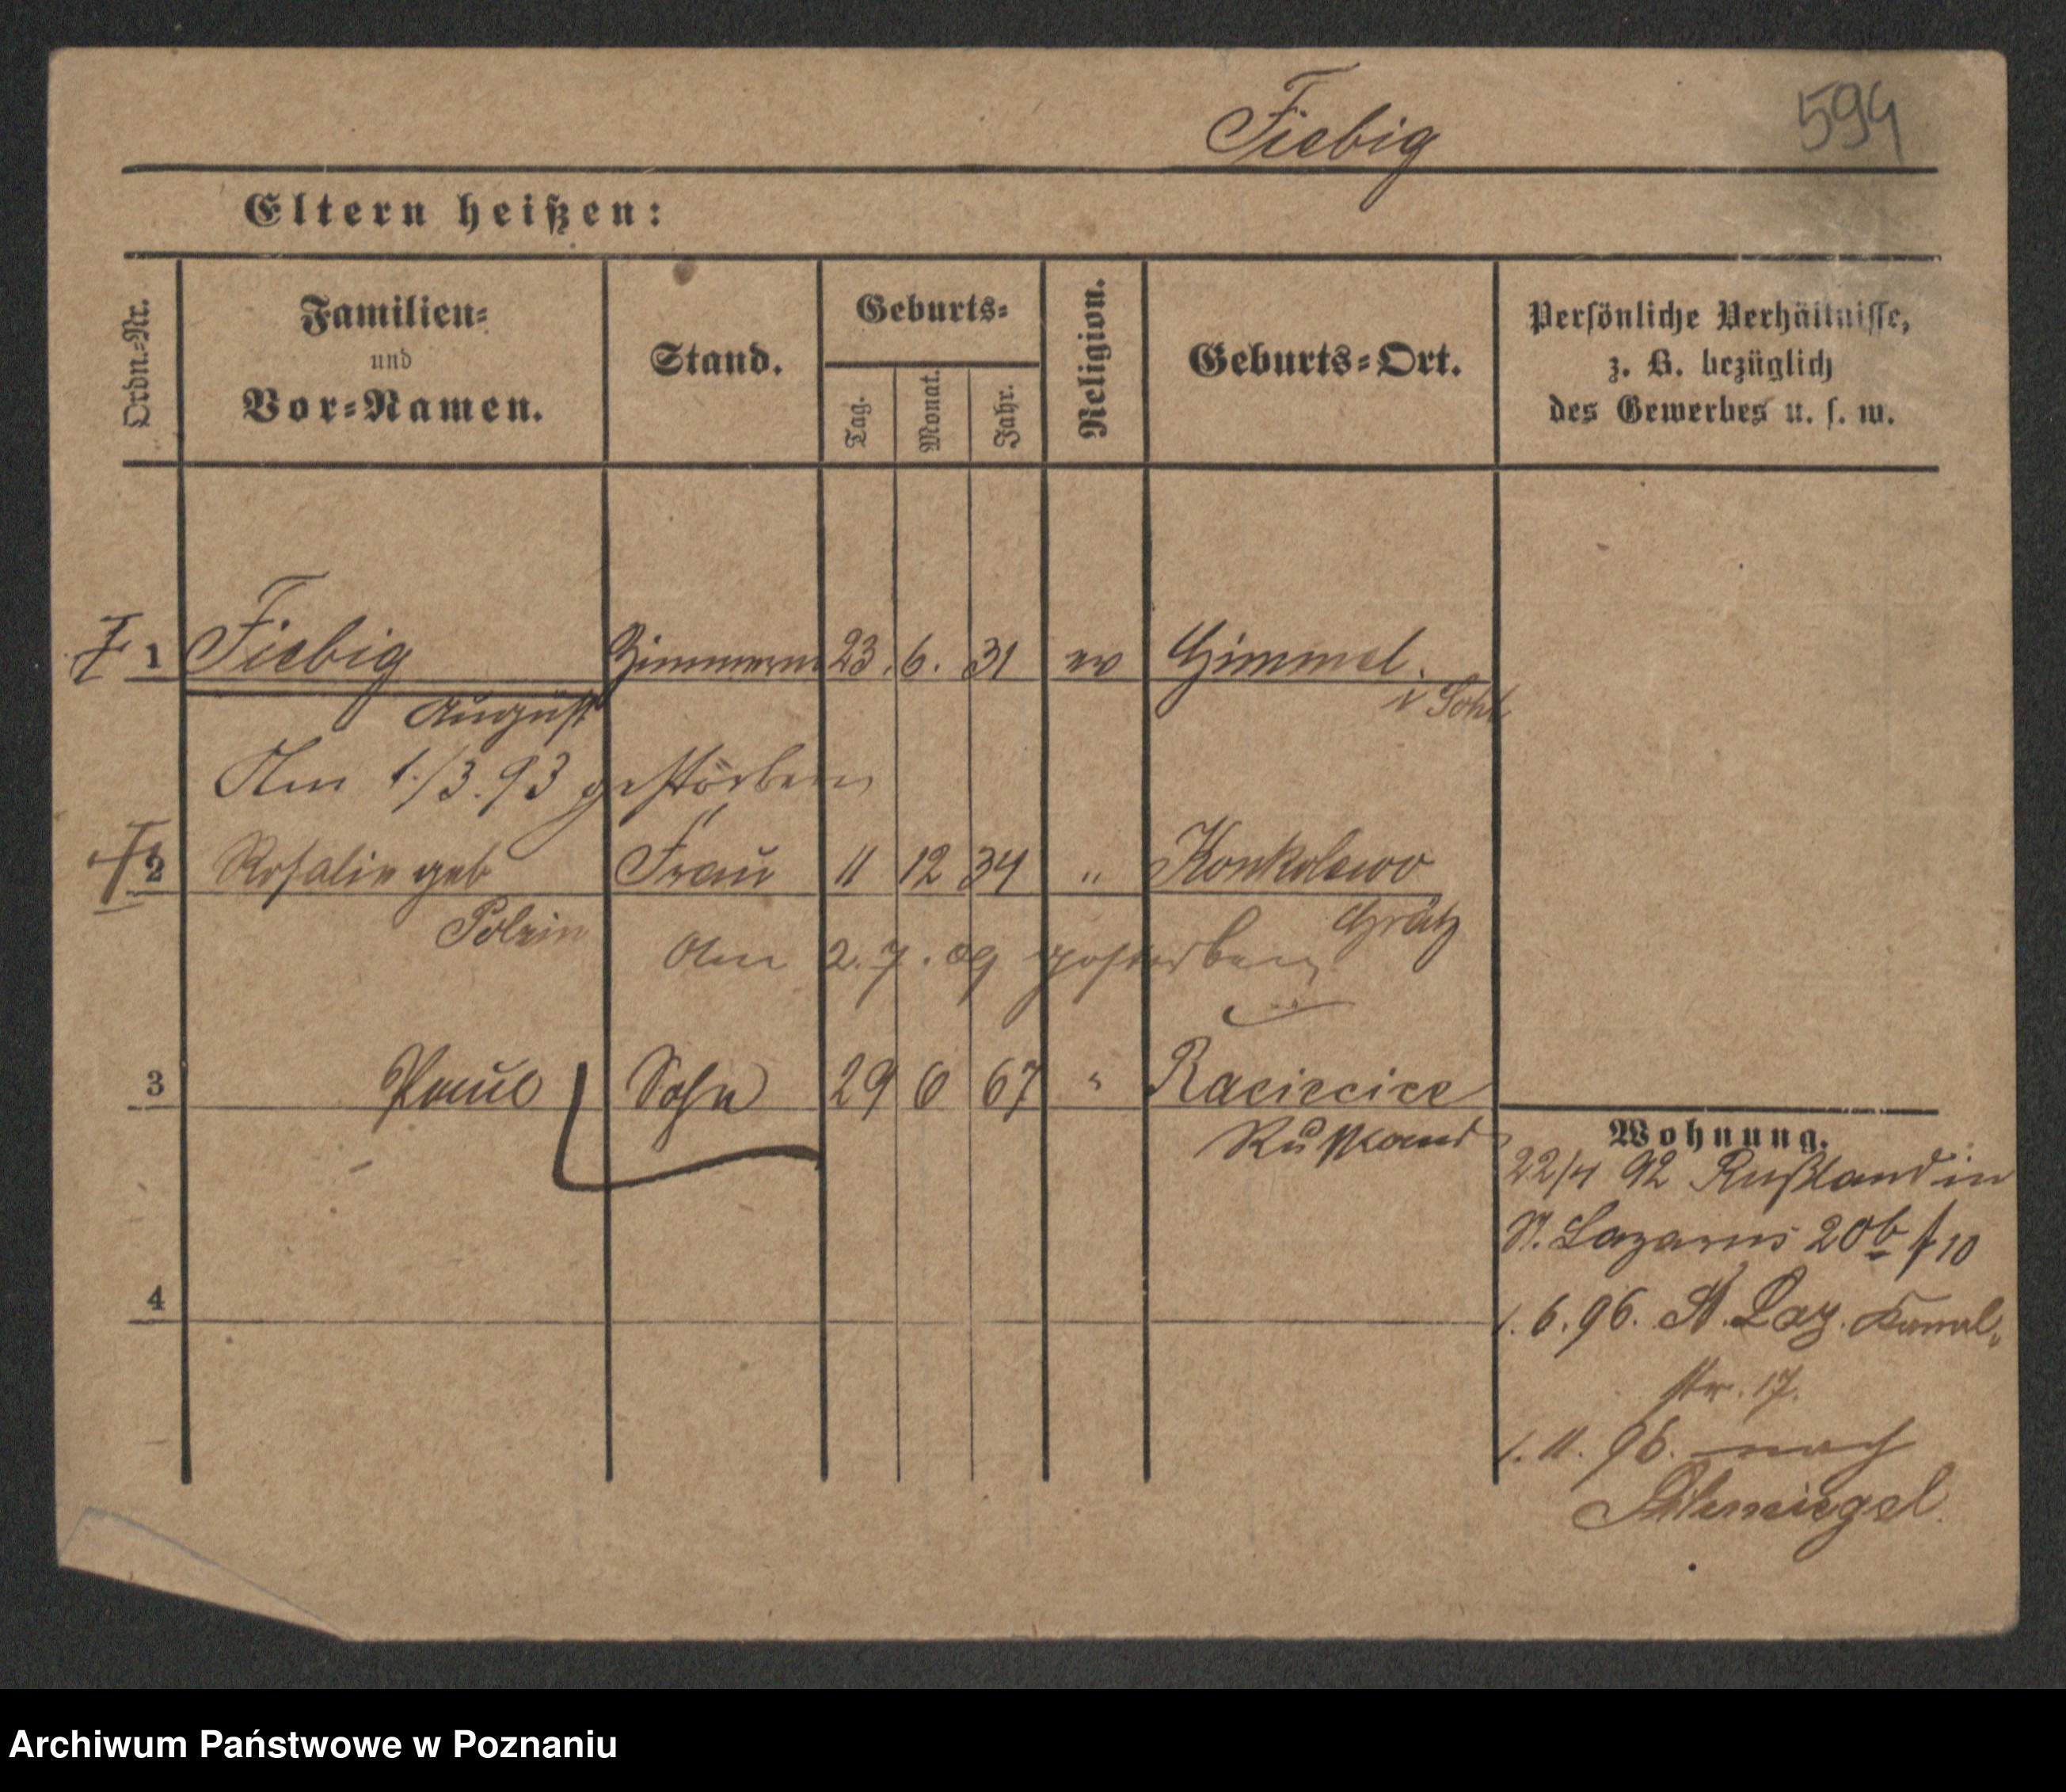 Fiebig
594
Eltern heißen:
Ordn.-Nr.
Familien-
und
Vor-Namen.
Stand.
Geburts-
Tag.
Monat.
Jahr.
Religion.
Geburts-Ort.
Persönliche Verhältnisse,
z. B. bezüglich
des Gewerbes u. s. w.
1 Fiebig Zimmerm 23. 6. 31 ev Himmel.
August
Am 1./3.93 gestorben
2 Rosalie geb Frau 11 12 34 " Konkolewo
Polzin Grätz
Am 2.7.09 gestorben
3 Paul Sohn 29 6 67 " Raciecice
Rußland
Wohnung.
22/4 92 Rußland in
St. Lazarus 20b 10
4
1.6.96. St. Laz. Kanal-
str. 17.
1.11.96. nach
Schmiegel.
Archiwum Państwowe w Poznaniu